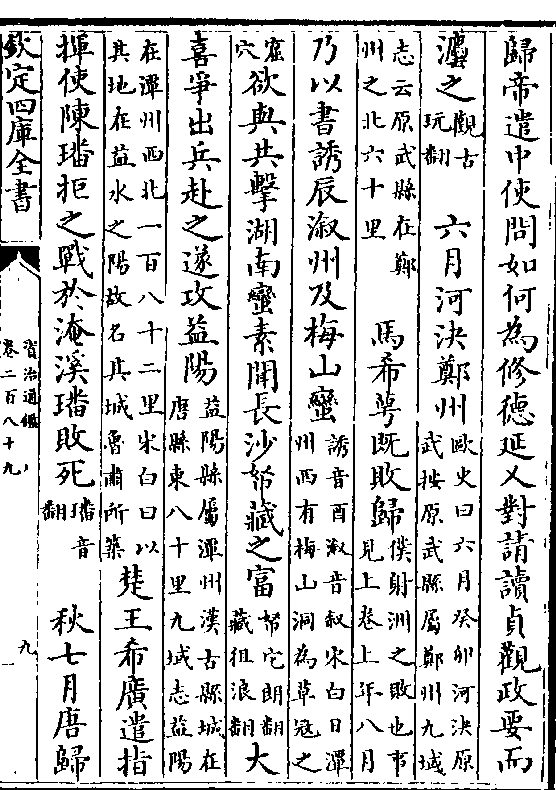 歸帝遣中使問如何為修德延乂對請讀貞觀政要而
灋之觀古玩翻六月河決鄭州歐史曰六月癸卯河決原武按原武縣屬鄭州九域
志云原武縣在鄭州之北六十里馬希萼既敗歸僕射洲之敗也事見上卷上年八月
乃以書誘辰溆州及梅山蠻誘音酉溆音叙宋白曰潭州西有梅山洞為草寇之
窟穴欲與共擊湖南蠻素聞長沙帑藏之富帑它朗翻藏徂浪翻大
喜爭出兵赴之遂攻益陽益陽縣屬潭州漢古縣城在唐縣東八十里九域志益陽
在潭州西北一百八十二里宋白曰以其地在益水之陽故名其城魯肅所築楚王希廣遣指
揮使陳璠拒之戰於淹溪璠敗死璠音翻秋七月唐歸
欽定四庫全書
資治通鑑
卷二百八十九
九